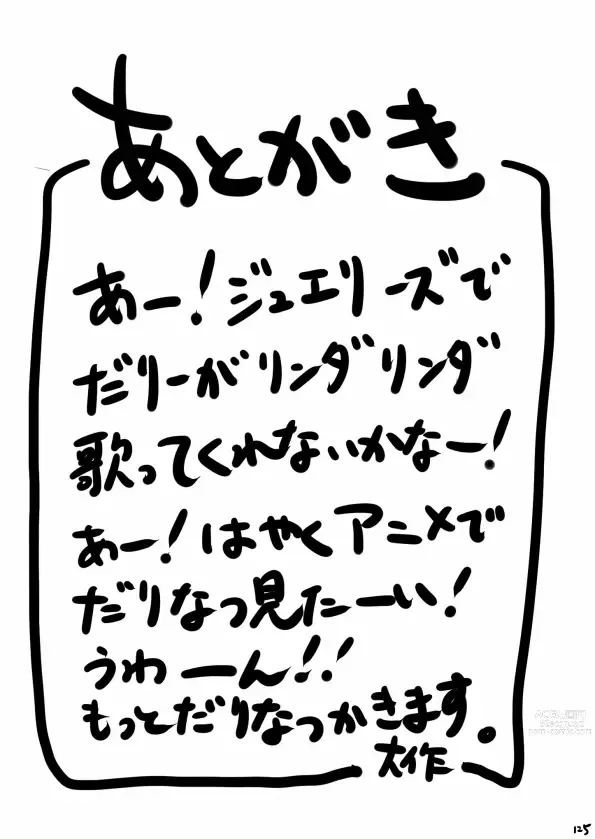 あとがき
あー!ジュエリーズで
だりーがリンダリンダ
歌ってくれないかなー!
あー!はやくアニメで
だりなつ見たーい!
うわーん!!
もっとだりなつかきます。
大作
125